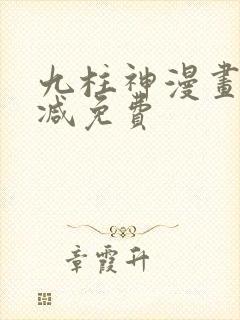 九柱神漫畫
减免費
章霞升